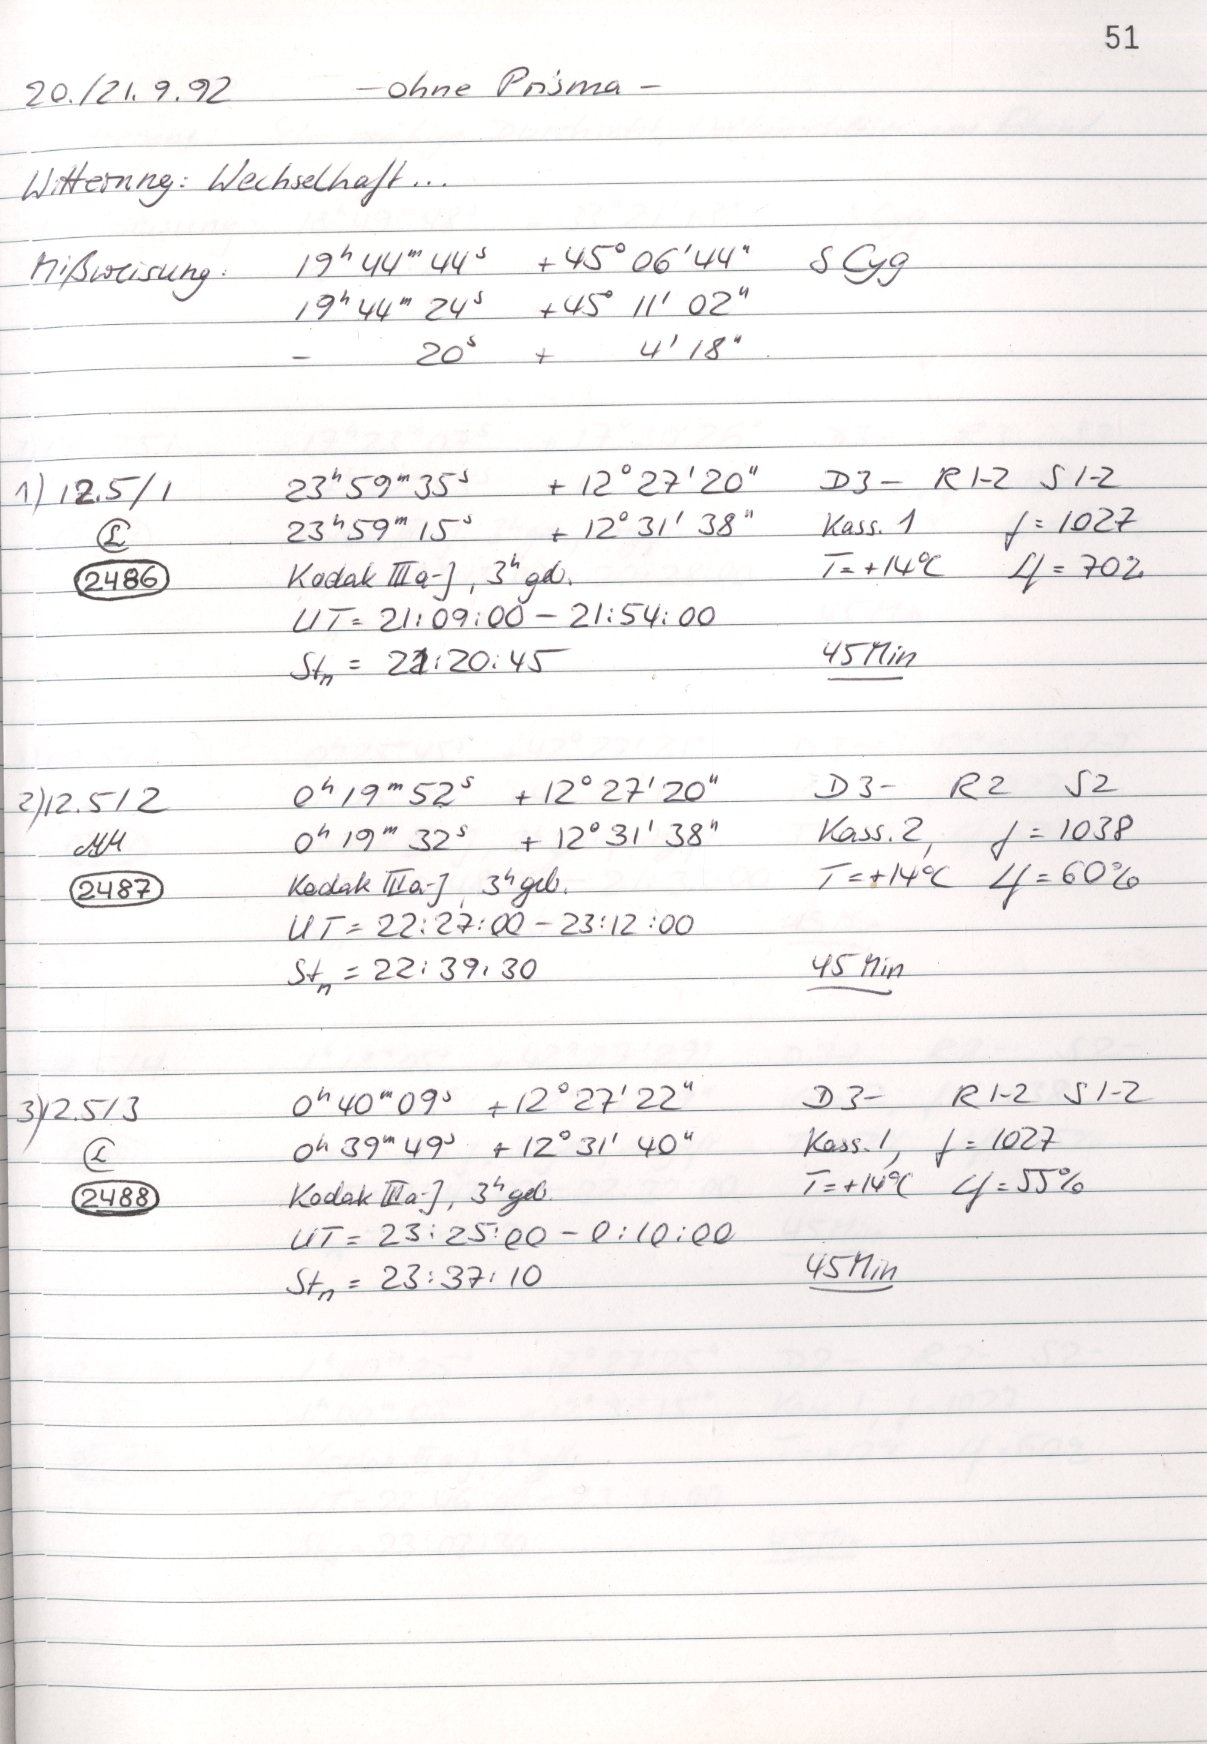 51
20./21.9.92 – ohne Prisma –
Witterung: Wechselhaft...
Mißweisung: 19ʰ44ᵐ44ˢ +45°06'44" δ Cyg
19ʰ44ᵐ24ˢ +45°11'02"
– 20ˢ + 4'18"
1) 12.5/1 23ʰ59ᵐ35ˢ +12°27'20" D3– R1-2 S1-2
23ʰ59ᵐ15ˢ +12°31'38" Kass. 1 f=1027
2486 Kodak IIIa-J, 3ʰ geb. T=+14°C φ=70%
UT= 21:09:00 – 21:54:00
Stₙ = 21:20:45 45 Min
2) 12.5/2 0ʰ19ᵐ52ˢ +12°27'20" D3– R2 S2
0ʰ19ᵐ32ˢ +12°31'38" Kass. 2, f=1038
2487 Kodak IIIa-J, 3ʰ geb. T=+14°C φ=60%
UT= 22:27:00 – 23:12:00
Stₙ = 22:39:30 45 Min
3) 12.5/3 0ʰ40ᵐ09ˢ +12°27'22" D3– R1-2 S1-2
0ʰ39ᵐ49ˢ +12°31'40" Kass. 1, f=1027
2488 Kodak IIIa-J, 3ʰ geb. T=+14°C φ=55%
UT= 23:25:00 – 0:10:00
Stₙ = 23:37:10 45 Min